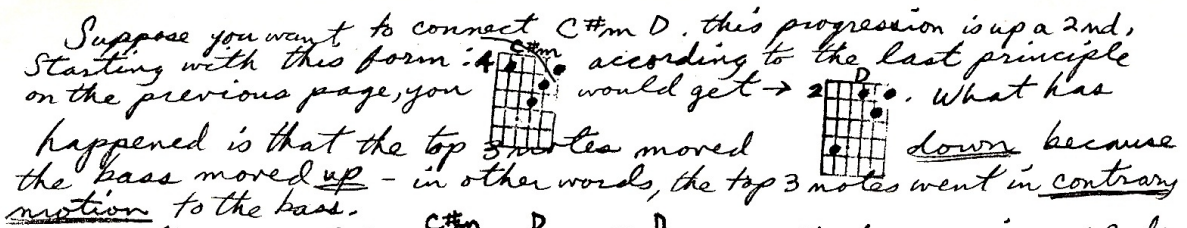 Suppose you want to connect C#m D. this progression is up a 2nd,
Starting with this form: 4 C#m according to the last principle
on the previous page, you would get → 2 D . What has
happened is that the top 3 notes moved down because
the bass moved up - in other words, the top 3 notes went in contrary
motion to the bass.
C#m D D